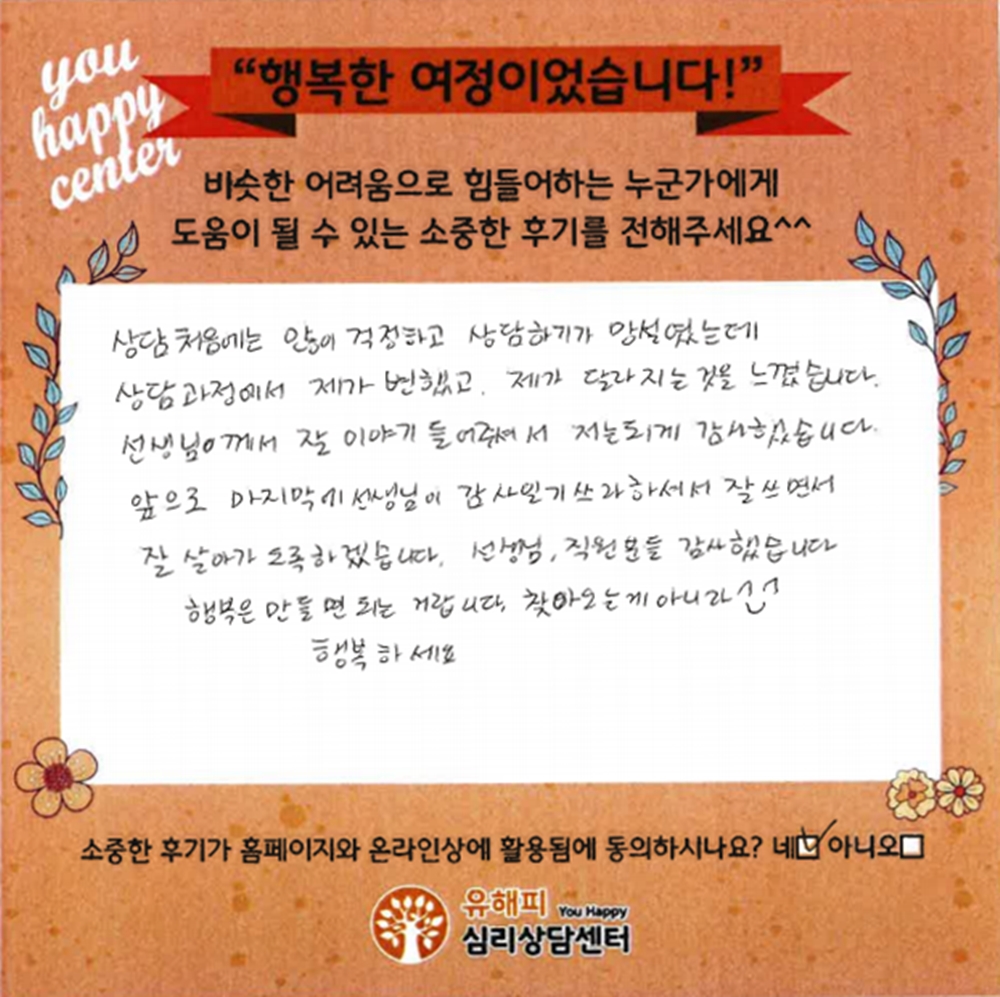 you
happy
center
“행복한 여정이었습니다!”
비슷한 어려움으로 힘들어하는 누군가에게
도움이 될 수 있는 소중한 후기를 전해주세요^^
상담처음에는 많이 걱정하고 상담하기가 망설였는데
상담과정에서 제가 변했고. 제가 달라지는것을 느꼈습니다.
선생님이께서 잘 이야기 들어주셔서 저는되게 감사했습니다.
앞으로 마지막에선생님이 감사일기쓰라하셔서 잘쓰면서
잘 살아가도록하겠습니다. 선생님, 직원분들 감사했습니다
행복은 만들면 되는 거랍니다. 찾아오는게아니라
행복하세요
소중한 후기가 홈페이지와 온라인상에 활용됨에 동의하시나요? 네 아니오
유해피 You Happy
심리상담센터